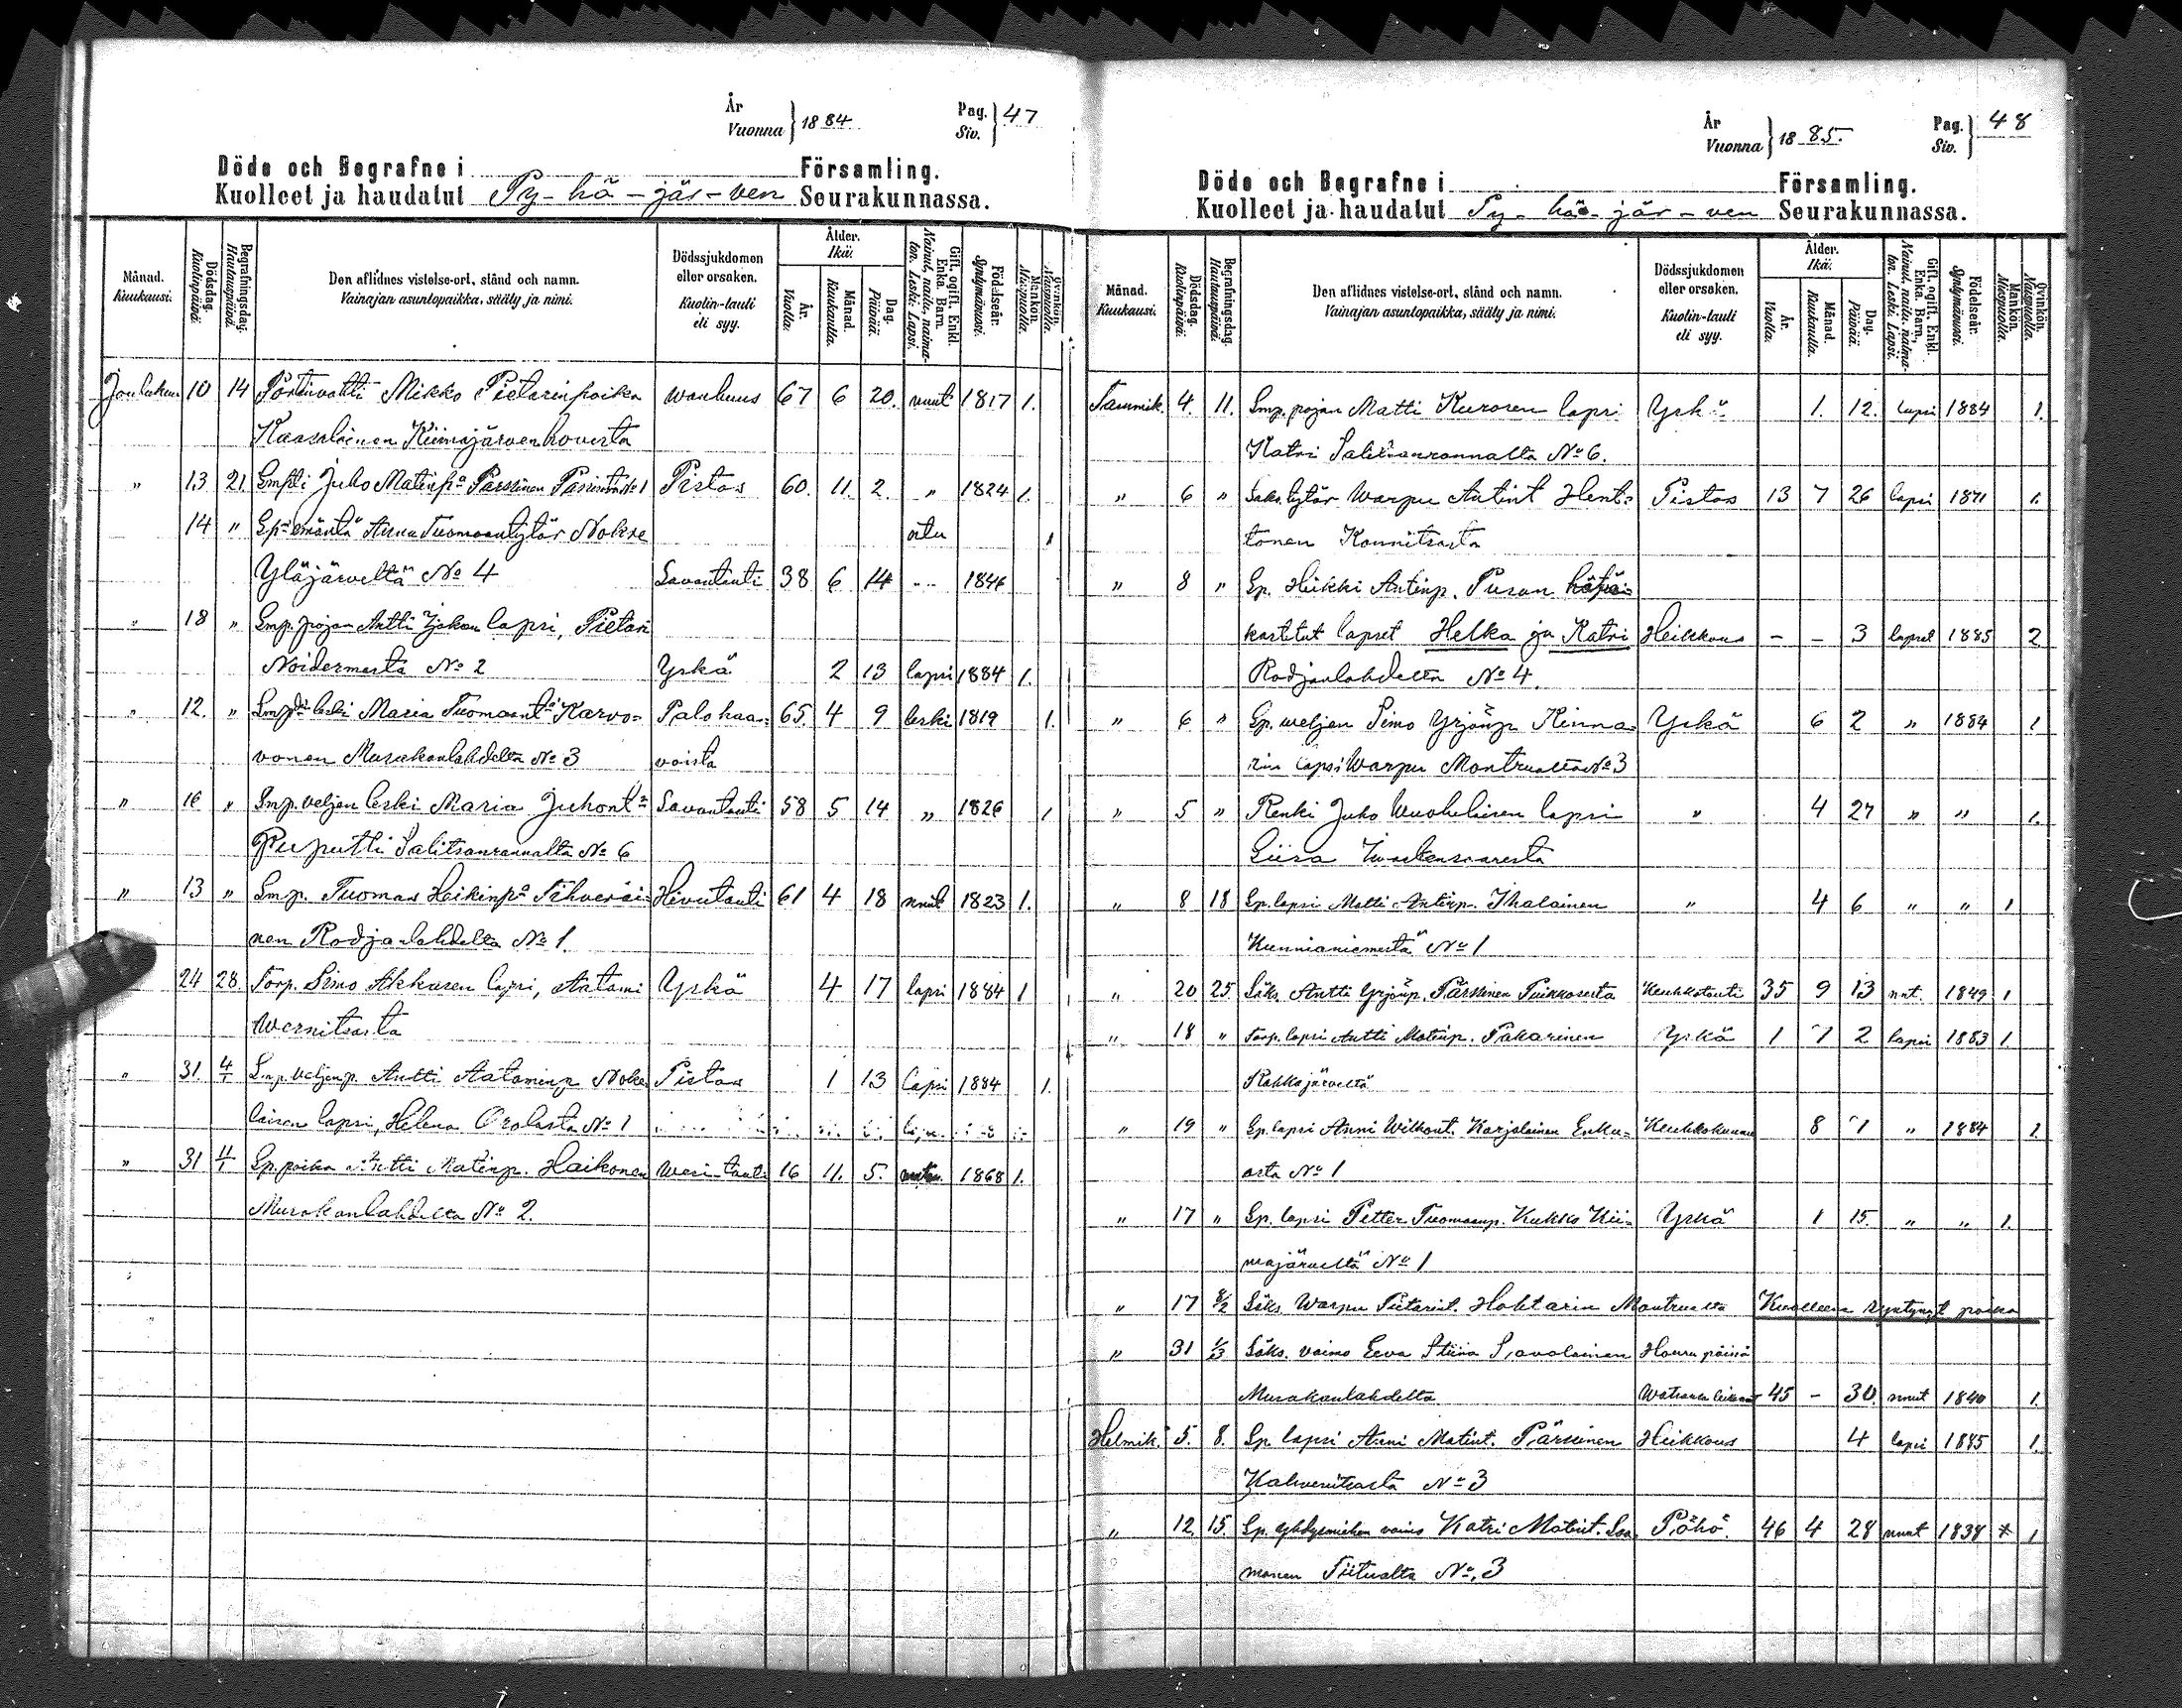 År
Vuonna } 1884 Pag. Siv. } 47
Döde och Begrafne i Församling.
Kuolleet ja haudatut Py-hä-jär-ven Seurakunnassa.
Månad. Kuukausi. Dödsdag. Kuolinpäivä. Begrafningsdag. Hautauspäivä. Den aflidnes vistelse-ort, stånd och namn. Vainajan asuntopaikka, sääty ja nimi. Dödssjukdomen eller orsaken. Kuolin-tauti eli syy. Ålder. Ikä. År. Vuotta. Månad. Kuukautta. Dag. Päivää. Gift, ogift, Enkl. Enka. Barn. Nainut, naitu, naimaton. Leski. Lapsi. Födelseår. Syntymävuosi. Mankön. Miespuolia. Qvinkön. Naispuolia.
Joulukuu 10 14 Mikko Pietarinpoika wanhuus 67 6 20. nnut 1817 1.
Kaasalainen Kiimajärvenhovista
" 13 21. Juho Matinpa Pärssinen No 1 Pistos 60. 11. 2. " 1824 1.
14 " Gp. emäntä Anna Tuomaantytär Nokse
Yläjärveltä No 4 Lavantauti 38 6 14 1846
" 18 " Lmp. pojan Antti lapsi, Pietari
Noidermasta No 2 Yskä 2 13 lapsi 1884 1.
" 12. " leski Maria Tuomaant. Karvo= Palohaa= 65. 4 9 leski 1819 1.
vonen Musakanlahdelta No 3 voista
" 16 " Lmp. veljen leski Maria Juhont. Lavantauti 58 5 14 " 1826 1
Purputti Salitsanrannalta No 6
" 13 " Lmp. Tuomas Heikinpa Tihveräi= Hivutauti 61 4 18 nnut 1823 1.
nen Rodjanlahdelta No 1.
24 28. Torp. Simo Akkasen lapsi, Aatami Yskä 4 17 lapsi 1884 1
Wernitsasta
" 31. 4/1 Lmp. veljenp. Antti Aataminp. Pistos 1 13 lapsi 1884 1.
laisen lapsi, Helena Orolasta No 1
" 31 4/1 Lp. poika Antti Matinp. Haikonen Wesi-tauti 16 11. 5. 1868 1.
Musakanlahdelta No 2.
År
Vuonna } 1885. Pag. Siv. } 48
Döde och Begrafne i Församling.
Kuolleet ja haudatut Py-hä-jär-ven Seurakunnassa.
Månad. Kuukausi. Dödsdag. Kuolinpäivä. Begrafningsdag. Hautauspäivä. Den aflidnes vistelse-ort, stånd och namn. Vainajan asuntopaikka, sääty ja nimi. Dödssjukdomen eller orsaken. Kuolin-tauti eli syy. Ålder. Ikä. År. Vuotta. Månad. Kuukautta. Dag. Päivää. Gift, ogift, Enkl. Enka. Barn. Nainut, naitu, naimaton. Leski. Lapsi. Födelseår. Syntymävuosi. Mankön. Miespuolia. Qvinkön. Naispuolia.
Tammik. 4. 11. Lmp. pojan Matti Kurosen lapsi Yskä 1. 12. lapsi 1884 1.
Katri Salitsanrannalta No 6.
" 6 " tytär Warpu Antint. Hent= Pistos 13 7 26 lapsi 1871 1.
tonen Konnitsasta
" 8 " Lp. Heikki Antinp. Pusan hätä=
kastetut lapset Helka ja Katri Heikkous - - 3 lapset 1885 2
Rodjanlahdelta No 4.
" 6 " Lp. weljen Simo Yrjönp. Kinna= Yskä 6 2 " 1884 1
rin lapsi Warpu Montrualta No 3
" 5 " Renki Juho Wuohelaisen lapsi " 4 27 " " 1.
Liisa
" 8 18 Lp. lapsi Matti Antinp. Ihalainen " 4 6 " " 1
Kunnianiemestä No 1
" 20 25. Läks. Antti Yrjönp. Pärssinen Keuhkotauti 35 9 13 nnt. 1849 1
" 18 " Torp. lapsi Antti Matinp. Pakarinen Yskä 1 7 2 lapsi 1883 1.
Rahkajärveltä
" 19 " Lp. lapsi Anni Wilhont. Karjalainen Enku= 8 7 " 1884 1.
asta No 1
" 17 " Lp. lapsi Petter Tuomaanp. Kukko Kii= Yskä 1 15. " " 1.
majärveltä No 1
" 17 8/2 Läks. Warpu Pietarint. Hohtarin Montrualta Kuolleena syntynyt poika
" 31 1/3 Läks. vaimo Eeva Stiina Savolainen Houru päisä
Musakanlahdelta 45 - 30. nnut 1840 1.
Helmik. 5. 8. Lp. lapsi Anni Matint. Pärssinen Heikkous 4 lapsi 1885 1.
Kahvenitsasta No 3
" 12. 15. Lp. yhtiömiehen vaimo Katri Matint. Loa= Pöhö. 46 4 28 nnut 1838 * 1
manen Tiitualta No. 3